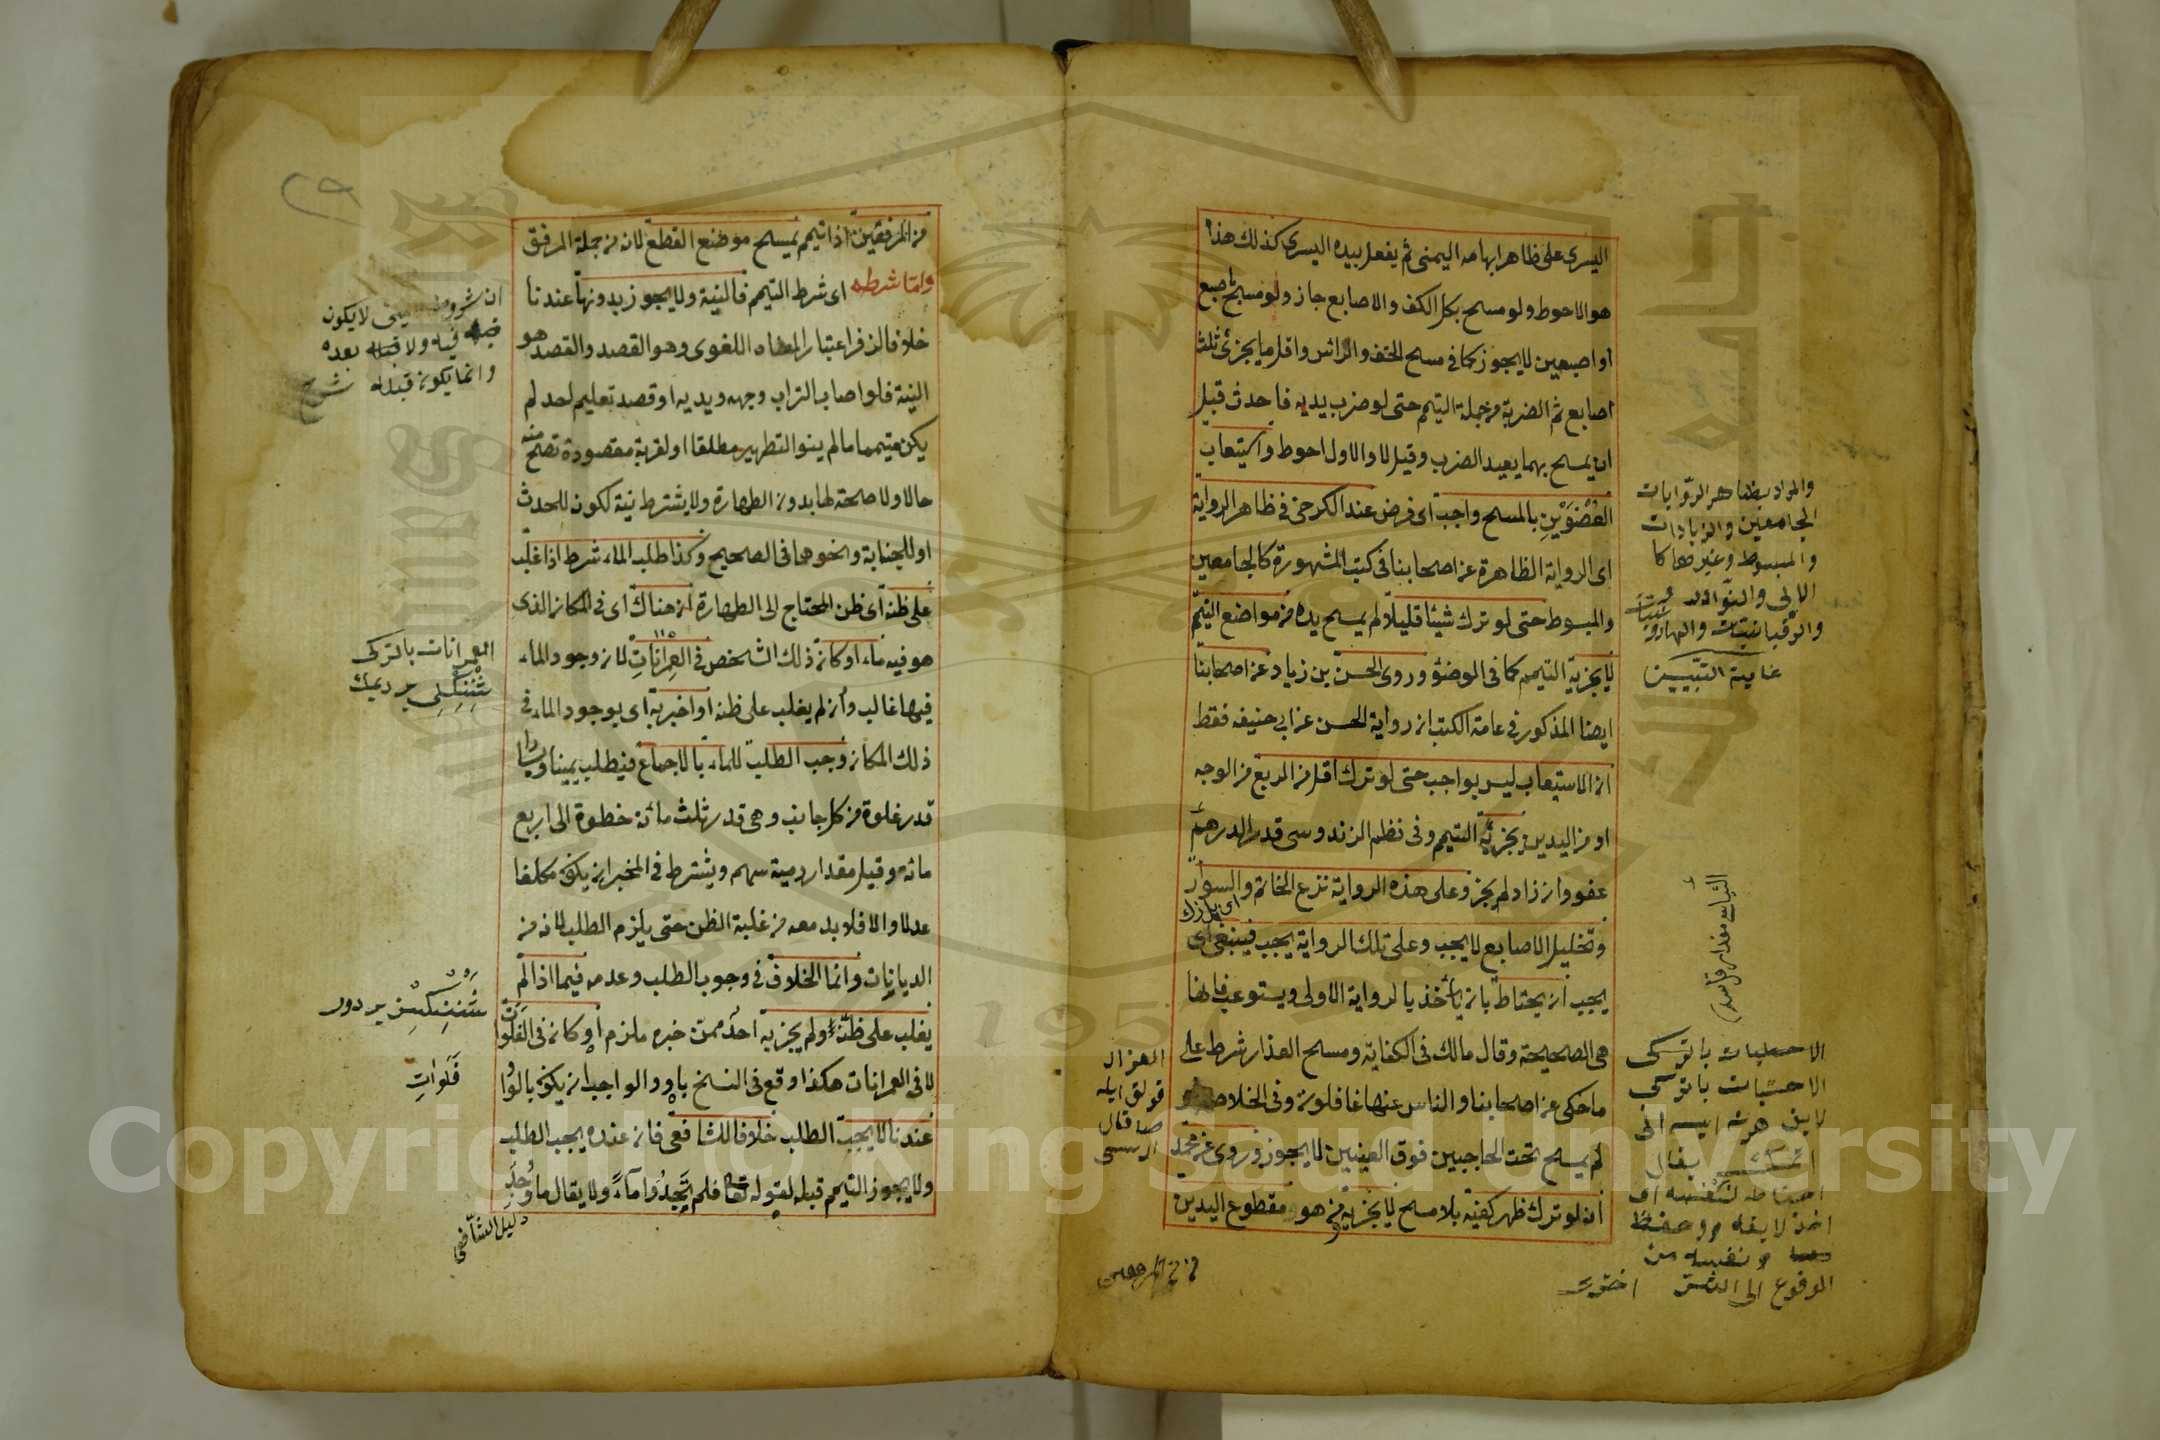 اليسرى على ظاهر ابهامه اليمنى ثم يفعل بيده اليسرى كذلك هذا
هو الاحوط ولو مسح بكل الكف والاصابع جاز ولو مسح باصبع
او اصبعين لا يجوز كما في مسح الخف والراس واقل ما يجزئ ثلث
اصابع ثم الضربة من جملة التيمم حتى لو ضرب يديه فاحدث قبل
ان يمسح بهما يعيد الضرب وقيل لا والاول احوط واستيعاب
العُضْوَيْنِ بالمسح واجب اى فرض عند الكرخى في ظاهر الرواية
اى الرواية الظاهرة عن اصحابنا في كتب المشهورة كالجامعين
والمبسوط حتى لو ترك شيئا قليلا لم يمسح يده من مواضع التيمم
لا يجزيه التيمم كما في الوضوء وروى الحسن بن زياد عن اصحابنا
ايضا المذكور في عامة الكتب ان رواية الحسن عن ابى حنيفه فقط
ان الاستيعاب ليس بواجب حتى لو ترك اقل من الربع من الوجه
او من اليدين يجزيه التيمم وفى نظم الزندوسى قدر الدرهم
عفو وان زاد لم يجز وعلى هذه الرواية نزع الخاتم والسوار
اى بلازك
وتخليل الاصابع لا يجب وعلى تلك الرواية يجب فينبغى اى
يجب ان يحتاط بان يأخذ بالرواية الاولى ويستوعب فانها
هى الصحيحة وقال مالك في الكفاية ومسح العذار شرط على
ما حكى عن اصحابنا والناس عنها غافلون وفى الخلاصة لو
لم يمسح تحت الحاجبين فوق العينين لا يجوز وروى عن محمد
انه لو ترك ظهر كفيه بلا مسح لا يجزيه ومن هو مقطوع اليدين
من المرفقين
والمراد بظاهر الروايات
الجامعين والزيادات
والمبسوط وغيرها كا
لامالى والنوادر و
والرقيانيات والهارونيات
غاية التبيين
الاحتياط باتوركى
لايق
احتاط لنفسه اى
اخذ
ونفسه من
الوقوع الى
من المرفقين اذا تيمم يمسح موضع القطع لانه من جملة المرفق
واما شرطه اى شرط التيمم فالنية ولا يجوز بدونها عندنا
خلافا لزفر اعتبار المعناه اللغوى وهو القصد والقصد هو
النية فلو اصاب التراب وجهه ويديه او قصد تعليم لاحد لم
يكن متيمما ما لم ينو التطهير مطلقا او لقربة مقصودة تصح منه
حالا ولا صحة لها بدون الطهارة ولا يشترط نية لكون للحدث
او للجنابة ونحوهما في الصحيح وكذا طلب الماء شرط اذا غلب
على ظنه اى ظن المحتاج الى الطهارة ان هناك اى في المكان الذى
هو فيه ماء او كان ذلك الشخص في العمرانات لان وجود الماء
فيها غالب وان لم يغلب على ظنه او اخبر به اى بوجود الماء في
ذلك المكان وجب الطلب للماء بالاجماع فيطلب يمينا ويسارا
قدر غلوة من كل جانب وهى قدر ثلث مائة خطوة الى اربع
مائه وقيل مقدار رمية سهم ويشترط في المخبر ان يكون مكلفا
عدلا والا فلا بد معه من غلبة الظن حتى يلزم الطلب لانه من
الديانات وانما الخلاف في وجوب الطلب وعدمه فيما اذا لم
يغلب على ظنه ولم يجز به احد ممن خبره ملزم او كان في الفلوات
لا في العمرانات هكذا وقع في النسخ باو والواجب ان يكون بالواو
عندنا لا يجب الطلب خلافا للشافعى فان عنده يجب الطلب
ولا يجوز التيمم قبله لقوله تعا فلم تجدوا ماءً ولا يقال ما وُجِدَ
دليل الشافعى
لا يكون
فيه ولا قبله بعده
وانما يكون قبله شرح
العمرانات بالتركى
شننكلى ير ديمك
شننكسز ير دور
فَلَوَاتِ
Copyright © King Saud University
1957